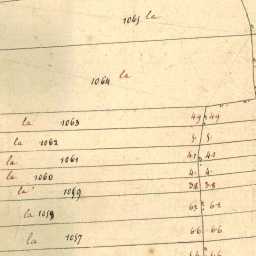 1065 la
1064 la
la 1063 49 49
la 1062 5. 5.
la 1061 41 41
la 1060 4. 4.
la 1059 38 3.8
la 1058 62 6.2
la 1057 6.6 6.6